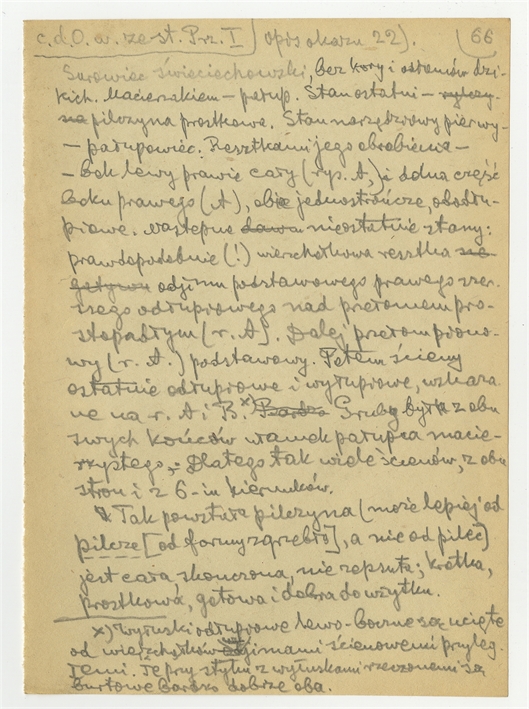 c. d. O. w. ze st. Prz. I) opis okazu 22). (66
Surowiec świeciechowski, bez kory i ostańców dzi-
kich. Macierzakiem – patup. Stan ostatni –
pilczyna prostkowa. Stan narzędziowy pierwy-
– patupowiec. Resztkami jego obrobienia –
– bok lewy prawie cały (rys. A,) i dolna część
boku prawego (A), obie jednostrończe, obodłu-
piowe. Następne niestatnie stany:
prawdopodobnie (!) wierzchołkowa resztka
odzimu podstawowego prawego
szego odłupiowego nad przełomem pro-
stopadłym (r. A). Dalej przełom piono-
wy (r. A.) podstawowy. Potem ściemy
ostatnie odłupiowe i wyłupiowe, wskaza
ne na r. A i B. x) Gruby był z obu
swych końców ułamek patupka macie-
rzystego, – Dlatego tak wiele ścienów, z obu
stron i z 6-iu kierunków.
Tak powstała pilczyna (może lepiej od
pilcze [od formy zgrzebło], a nie od pilić)
jest cała, skończona, nie zepsuta; krótka,
prostkowa, gotowa i dobra do użytku.
x) Wyłuski odłupiowe lewo-boczne są ucięte
od wierzchołków zimami ścienowemi przyleg-
łemi. Te przy styku z wyłuskami rzeczonemi są
burtowe bardzo dobrze oba.